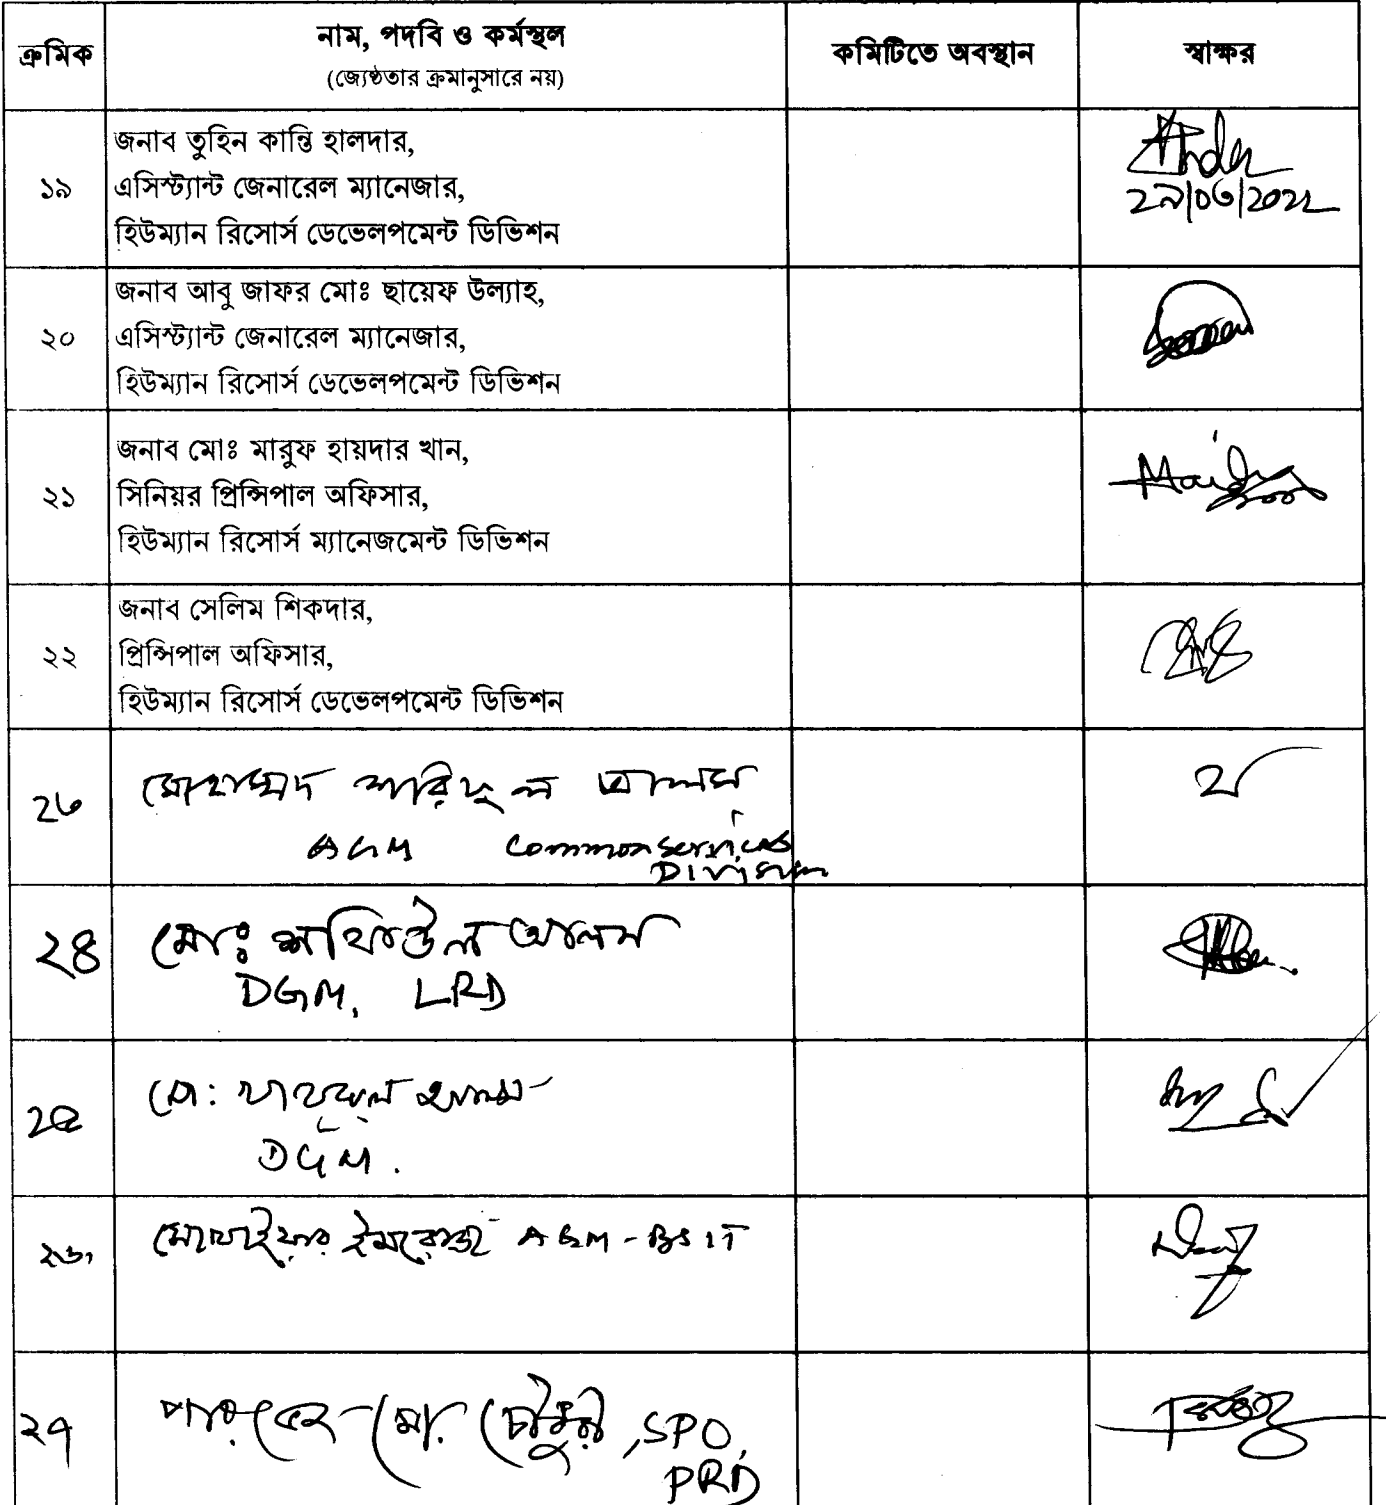 ক্রমিক
নাম, পদবি ও কর্মস্থল
(জ্যেষ্ঠতার ক্রমানুসারে নয়)
কমিটিতে অবস্থান
স্বাক্ষর
১৯
জনাব তুহিন কান্তি হালদার,
এসিস্ট্যান্ট জেনারেল ম্যানেজার,
হিউম্যান রিসোর্স ডেভেলপমেন্ট ডিভিশন
২৯/০৬/২০২২
২০
জনাব আবু জাফর মোঃ ছায়েফ উল্যাহ,
এসিস্ট্যান্ট জেনারেল ম্যানেজার,
হিউম্যান রিসোর্স ডেভেলপমেন্ট ডিভিশন
২১
জনাব মোঃ মারুফ হায়দার খান,
সিনিয়র প্রিন্সিপাল অফিসার,
হিউম্যান রিসোর্স ম্যানেজমেন্ট ডিভিশন
২২
জনাব সেলিম শিকদার,
প্রিন্সিপাল অফিসার,
হিউম্যান রিসোর্স ডেভেলপমেন্ট ডিভিশন
২৩
মোহাম্মদ শরিফুল আলম
AGM Common Services
Division
২৪
মোঃ শফিউল আলম
DGM, LRD
২৫
মো: আলম
DGM.
২৬
ইমরোজ AGM-BSIT
২৭
মো. চৌধুরী, SPO,
PRD